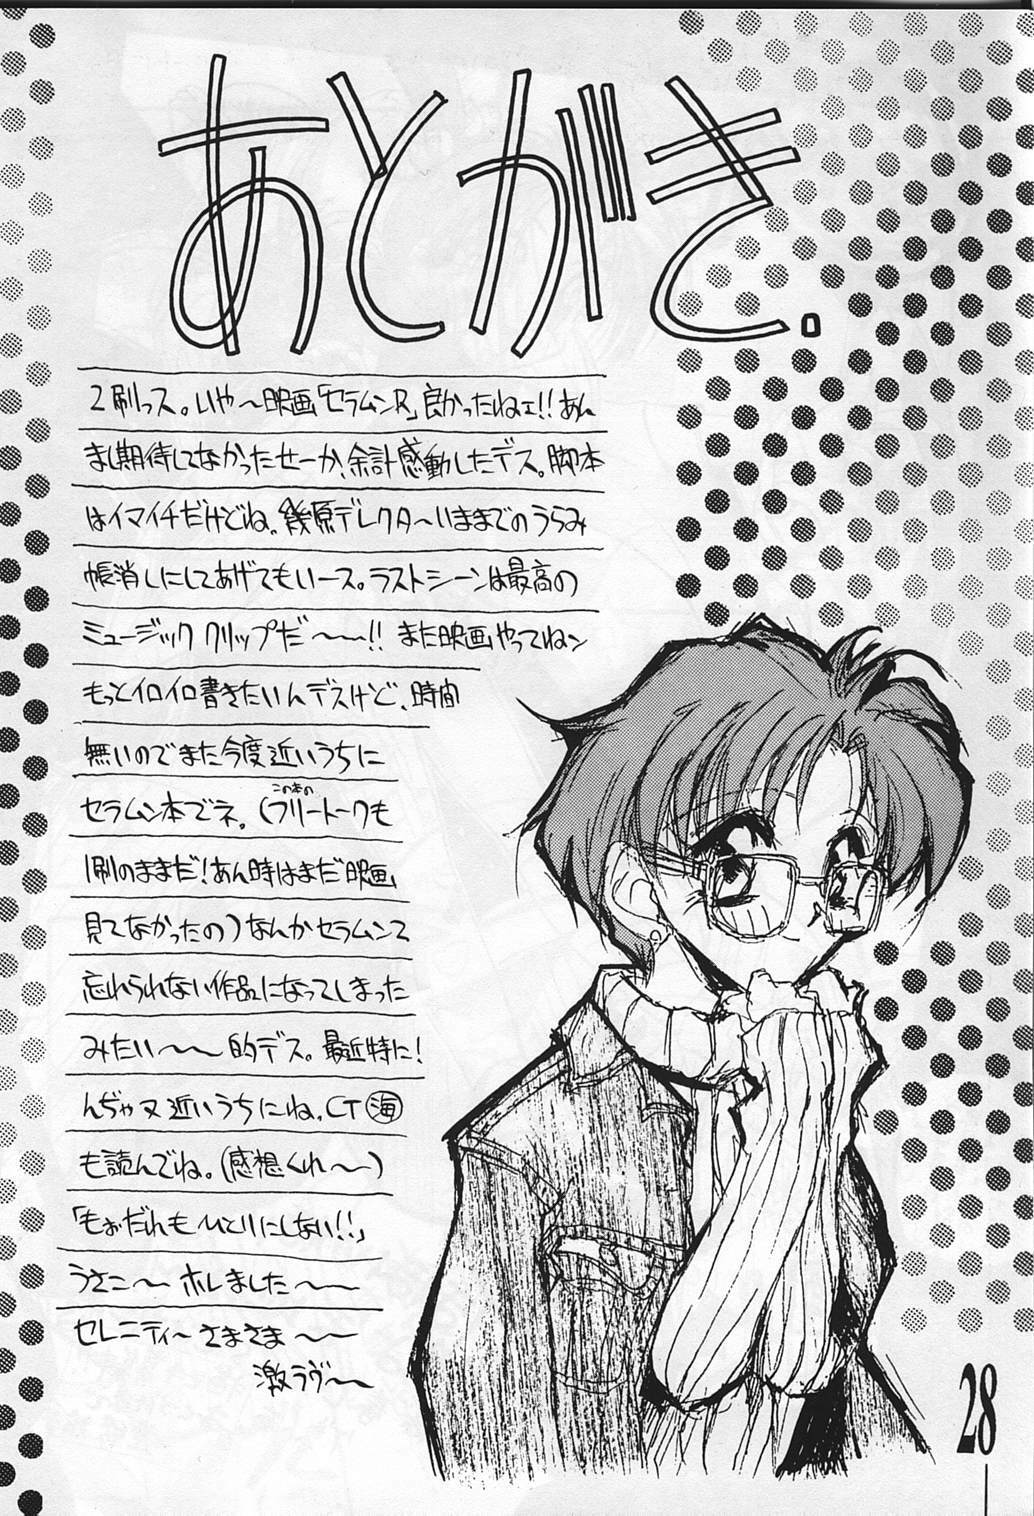 あとがき.
2刷っス。いや〜映画「セラムンR」良かったねェ!!あん
まし期待してなかったせーか、余計感動したデス。脚本
はイマイチだけどね。幾原デレクタ〜いままでのうらみ
帳消しにしてあげてもいース。ラストシーンは最高の
ミュージッククリップだ〜〜!! また映画やってねン
もっとイロイロ書きたいんデスけど、時間
無いのでまた今度近いうちに
セラムン本でネ。(この本の
フリートークも
1刷のままだ!あん時はまだ映画
見てなかったの)なんかセラムンて
忘れられない作品になってしまった
みたい〜〜的デス。最近特に!
んぢゃヌ近いうちにね。CT海
も読んでね。(感想くれ〜〜)
「もぉだれもひとりにしない!!」
うさこ〜ホレました〜〜
セレニティ〜さまさま〜〜
激ラヴ〜
28